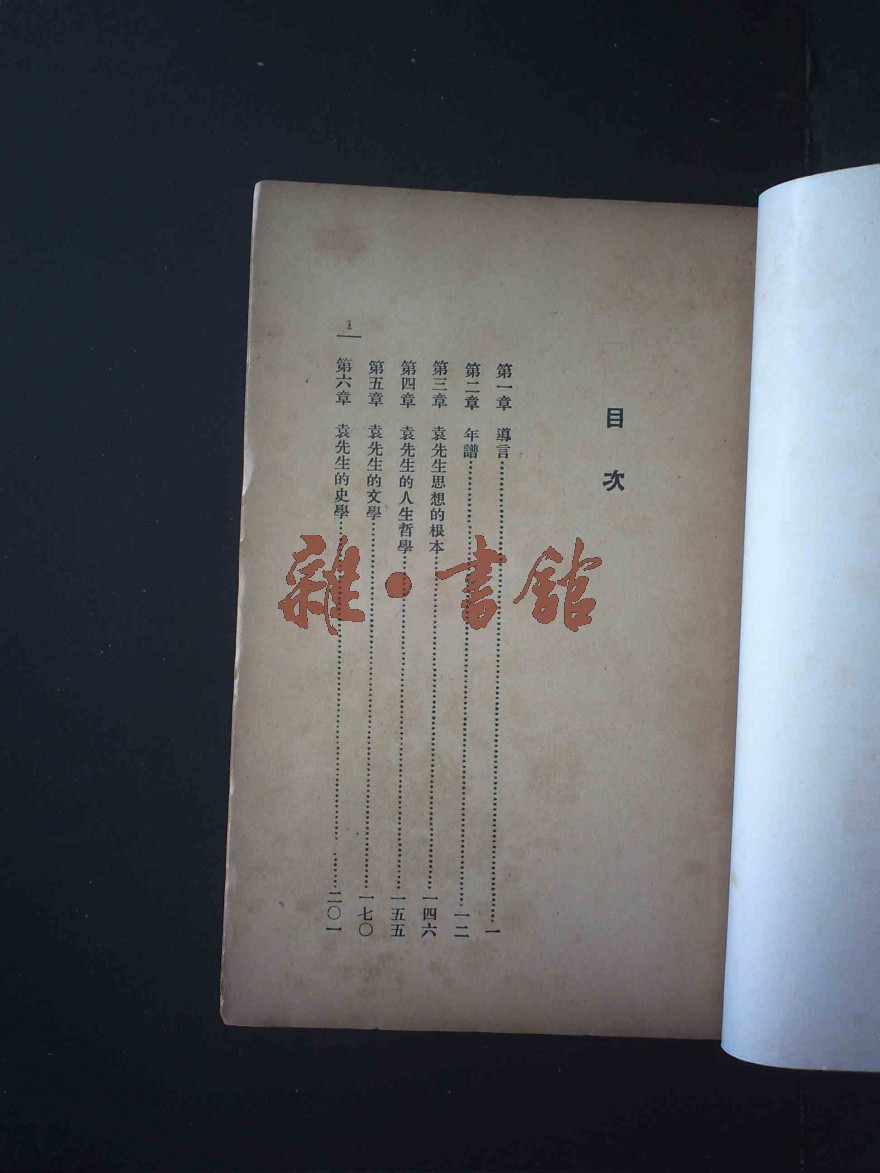 目次
第一章 導言……一
第二章 年譜……一二
第三章 袁先生思想的根本……一四六
第四章 袁先生的人生哲學……一五五
第五章 袁先生的文學……一七〇
第六章 袁先生的史學……二〇一
1
雜·書館